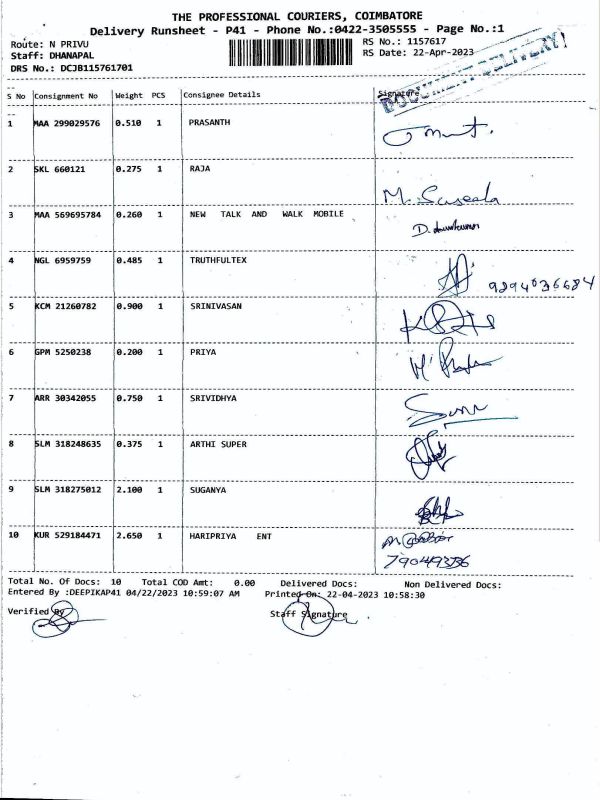 THE PROFESSIONAL COURIERS, COIMBATORE
Delivery Runsheet - P41 - Phone No.:0422-3505555 - Page No.:1
Route: N PRIVU
RS No.: 1157617
Staff: DHANAPAL
RS Date: 22-Apr-2023
DRS No.: DCJB115761701
DOCUMENT DELIVERY!
S No Consignment No Weight PCS Consignee Details Signature
1 MAA 299029576 0.510 1 PRASANTH
2 SKL 660121 0.275 1 RAJA
M. Suseela
3 MAA 569695784 0.260 1 NEW TALK AND WALK MOBILE
4 NGL 6959759 0.485 1 TRUTHFULTEX
9894036684
5 KCM 21260782 0.900 1 SRINIVASAN
6 GPM 5250238 0.200 1 PRIYA
7 ARR 30342055 0.750 1 SRIVIDHYA
8 SLM 318248635 0.375 1 ARTHI SUPER
9 SLM 318275012 2.100 1 SUGANYA
10 KUR 529184471 2.650 1 HARIPRIYA ENT
Total No. Of Docs: 10 Total COD Amt: 0.00 Delivered Docs: Non Delivered Docs:
Entered By :DEEPIKAP41 04/22/2023 10:59:07 AM Printed On: 22-04-2023 10:58:30
Verified By
Staff Signature